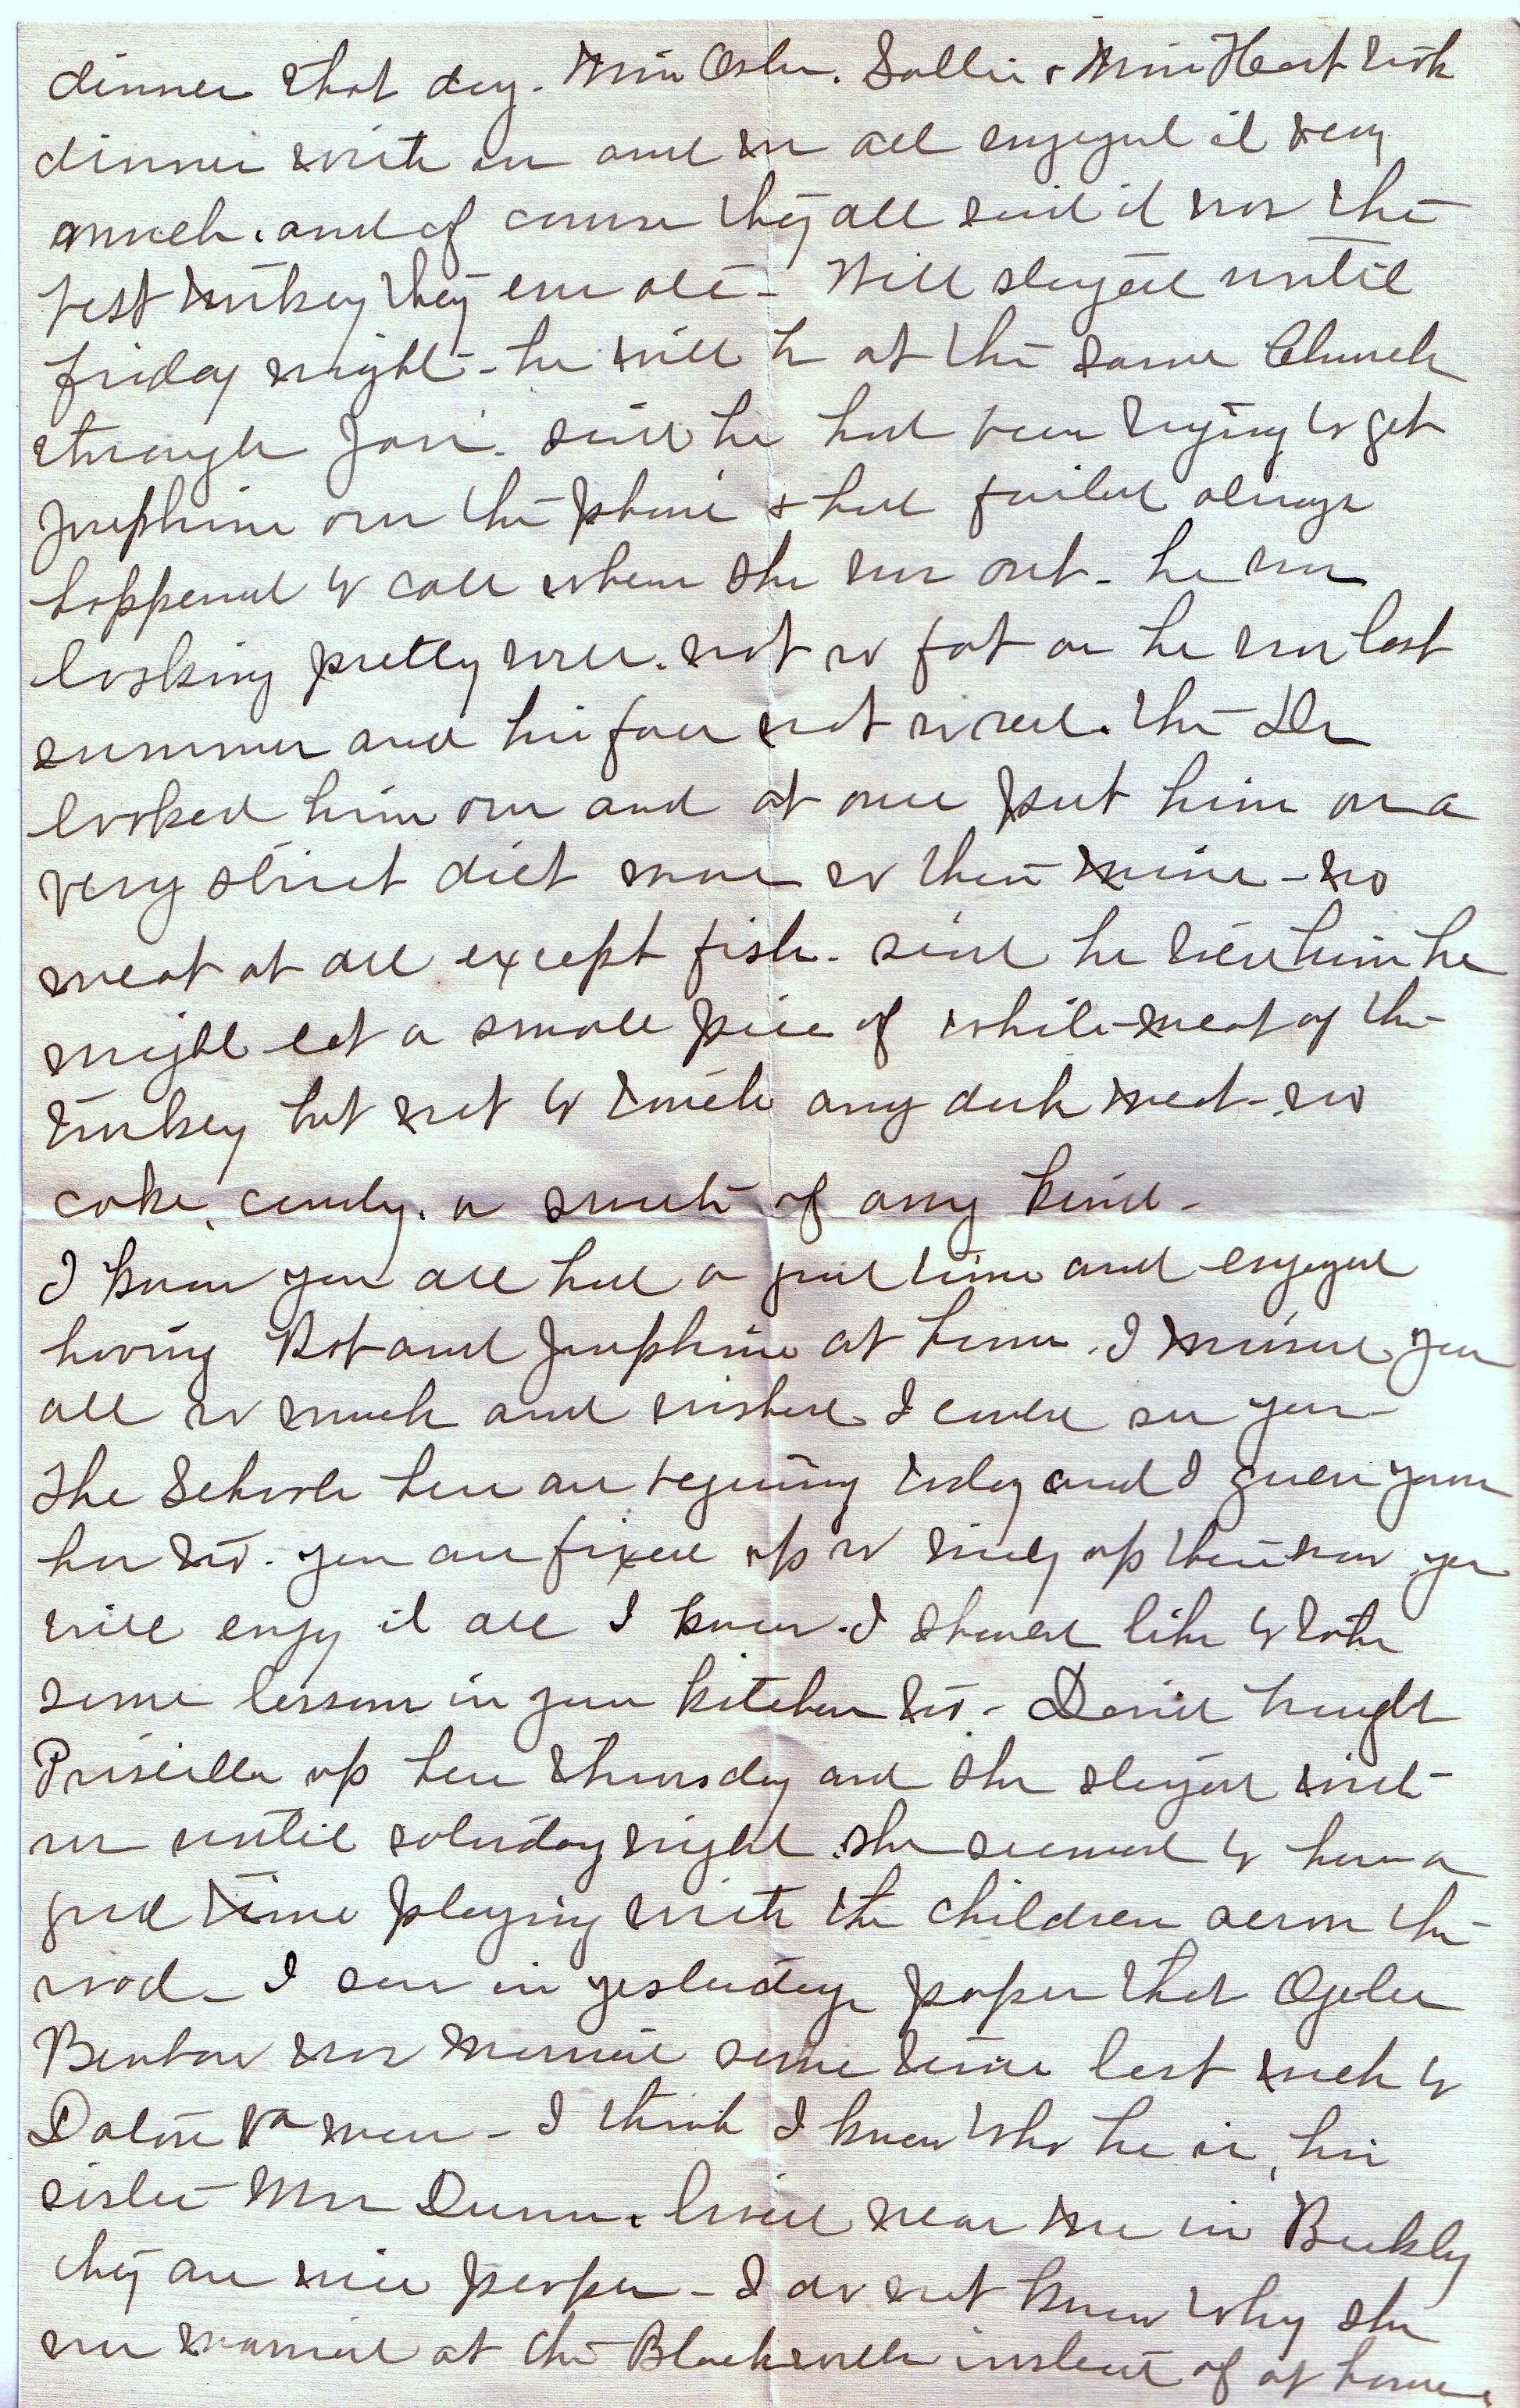 dinner that day. Miss Osler. Sallie & Miss Heart took
dinner with us and we all enjoyed it very
much. and of course they all said it was the
best turkey they ever ate - Will stayed until
friday night - he will be at the same Church
through Jan. said he had been trying to get
Josephine over the phone & had failed always
happened to call when she was out - he was
looking pretty well. not so fat as he was last
summer and his face not so red. the Dr
looked him over and at once put him on a
very strict diet more so then mine - no
meat at all except fish - said he told him he
might eat a small piece of white meat of the
turkey but not to touch any dark meat - no
cake, candy. or sweets of any kind -
I know you all had a good time and enjoyed
having Bob and Josephine at home. I missed you
all so much and wished I could see you -
The Schools here are begining today and I guess yours
has too. you are fixed up so nicely up there now you
will enjoy it all I know. I should like to take
some lessons in your kitchen too - David brought
Priscilla up here thursday and she stayed with
us until saturday night. she seemed to have a
good time playing with the children across the
road - I saw in yesterdays paper that
was married some time last week to
Va man - I think I know who he is, his
sister Mrs Dunn. lived near me in
they are nice people - I do not know why she
was married at the instead of at home